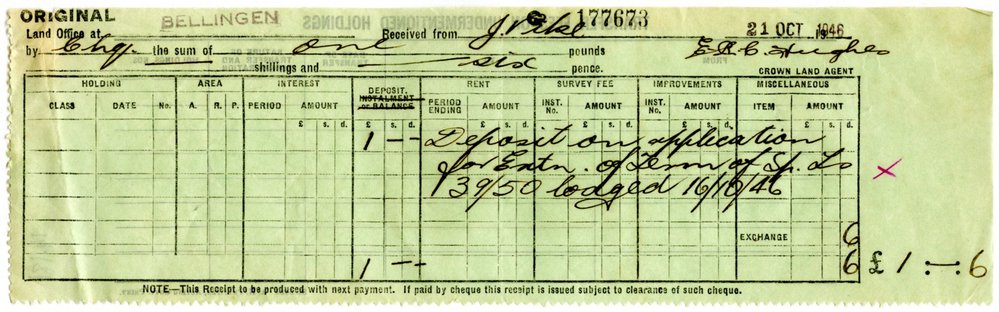 ORIGINAL BELLINGEN G 177673 21 OCT 1946
Land Office at Received from J. Pike
by Chq. the sum of One pounds E.R.C. Hughes
shillings and six pence. CROWN LAND AGENT
HOLDING AREA INTEREST DEPOSIT, INSTALMENT or BALANCE RENT SURVEY FEE IMPROVEMENTS MISCELLANEOUS
CLASS DATE No. A. R. P. PERIOD AMOUNT PERIOD ENDING AMOUNT INST. No. AMOUNT INST. No. AMOUNT ITEM AMOUNT
£ s. d. £ s. d. £ s. d. £ s. d. £ s. d. £ s. d.
1 – – Deposit on application
for Extn. of Term of Sp. Ls X
39/50 lodged 16/10/46
EXCHANGE 6
1 – – 6 £ 1 : – : 6
NOTE—This Receipt to be produced with next payment. If paid by cheque this receipt is issued subject to clearance of such cheque.